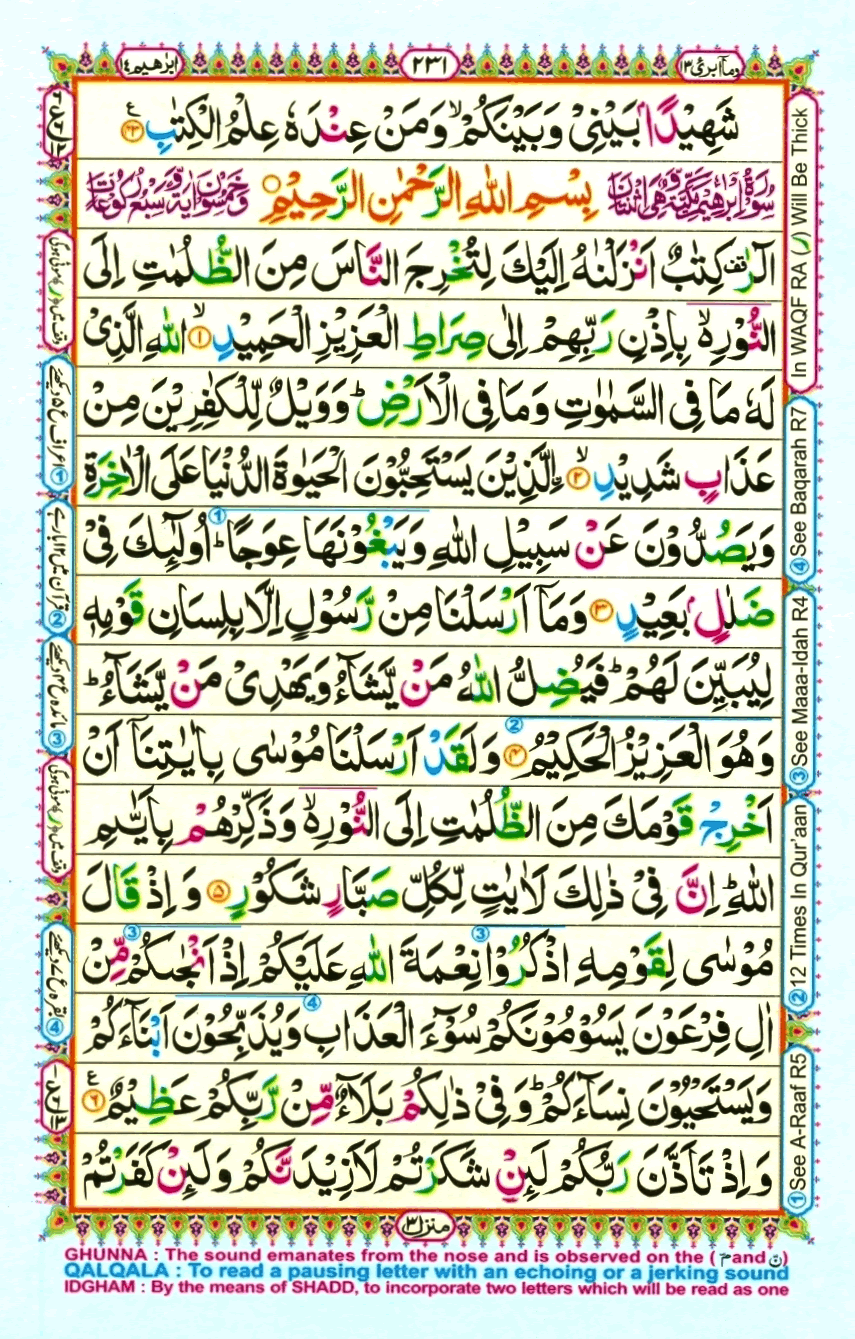 ابرٰهیم ۱۴
۲۳۱
وماۤ ابرئ ۱۳
شَهِيْدًاۢ بَيْنِيْ وَبَيْنَكُمْ ۙ وَمَنْ عِنْدَهٗ عِلْمُ الْكِتٰبِ ۴۳ ع
سُوْرَةُ اِبْرٰهِيْمَ مَكِّيَّةٌ وَّهِيَ اثْنَتَانِ بِسْمِ اللهِ الرَّحْمٰنِ الرَّحِيْمِ وَخَمْسُوْنَ اٰيَةً وَّسَبْعُ رُكُوْعَاتٍ
الٓرٰ ۚ قف كِتٰبٌ اَنْزَلْنٰهُ اِلَيْكَ لِتُخْرِجَ النَّاسَ مِنَ الظُّلُمٰتِ اِلَى
النُّوْرِ ۵ۙ بِاِذْنِ رَبِّهِمْ اِلٰى صِرَاطِ الْعَزِيْزِ الْحَمِيْدِ ۙ ۱ اللهِ الَّذِيْ
لَهٗ مَا فِي السَّمٰوٰتِ وَمَا فِي الْاَرْضِ ؕ وَوَيْلٌ لِّلْكٰفِرِيْنَ مِنْ
عَذَابٍ شَدِيْدِ ۙ ۲ ۨالَّذِيْنَ يَسْتَحِبُّوْنَ الْحَيٰوةَ الدُّنْيَا عَلَى الْاٰخِرَةِ
وَيَصُدُّوْنَ عَنْ سَبِيْلِ اللهِ وَيَبْغُوْنَهَا عِوَجًا ؕ اُولٰٓئِكَ فِيْ
ضَلٰلٍۢ بَعِيْدٍ ۳ وَمَاۤ اَرْسَلْنَا مِنْ رَّسُوْلٍ اِلَّا بِلِسَانِ قَوْمِهٖ
لِيُبَيِّنَ لَهُمْ ؕ فَيُضِلُّ اللهُ مَنْ يَّشَآءُ وَيَهْدِيْ مَنْ يَّشَآءُ ؕ
وَهُوَ الْعَزِيْزُ الْحَكِيْمُ ۴ وَلَقَدْ اَرْسَلْنَا مُوْسٰى بِاٰيٰتِنَاۤ اَنْ
اَخْرِجْ قَوْمَكَ مِنَ الظُّلُمٰتِ اِلَى النُّوْرِ ۵ۙ وَذَكِّرْهُمْ بِاَيّٰىمِ
اللهِ ؕ اِنَّ فِيْ ذٰلِكَ لَاٰيٰتٍ لِّكُلِّ صَبَّارٍ شَكُوْرٍ ۵ وَاِذْ قَالَ
مُوْسٰى لِقَوْمِهِ اذْكُرُوْا نِعْمَةَ اللهِ عَلَيْكُمْ اِذْ اَنْجٰىكُمْ مِّنْ
اٰلِ فِرْعَوْنَ يَسُوْمُوْنَكُمْ سُوْٓءَ الْعَذَابِ وَيُذَبِّحُوْنَ اَبْنَآءَكُمْ
وَيَسْتَحْيُوْنَ نِسَآءَكُمْ ؕ وَفِيْ ذٰلِكُمْ بَلَآءٌ مِّنْ رَّبِّكُمْ عَظِيْمٌ ۶ ع
وَاِذْ تَاَذَّنَ رَبُّكُمْ لَئِنْ شَكَرْتُمْ لَاَزِيْدَنَّكُمْ وَلَئِنْ كَفَرْتُمْ
منزل ۳
In WAQF RA (ر) Will Be Thick
④ See Baqarah R7
③ See Maaa-Idah R4
② 12 Times In Qur'aan
① See A-Raaf R5
① اعراف ع ۵ دیکھئے
② قرآن میں ۱۲ بار ہے
③ مائدہ ع ۴ دیکھئے
④ بقرہ ع ۷ دیکھئے
GHUNNA : The sound emanates from the nose and is observed on the ( مّ and نّ )
QALQALA : To read a pausing letter with an echoing or a jerking sound
IDGHAM : By the means of SHADD, to incorporate two letters which will be read as one